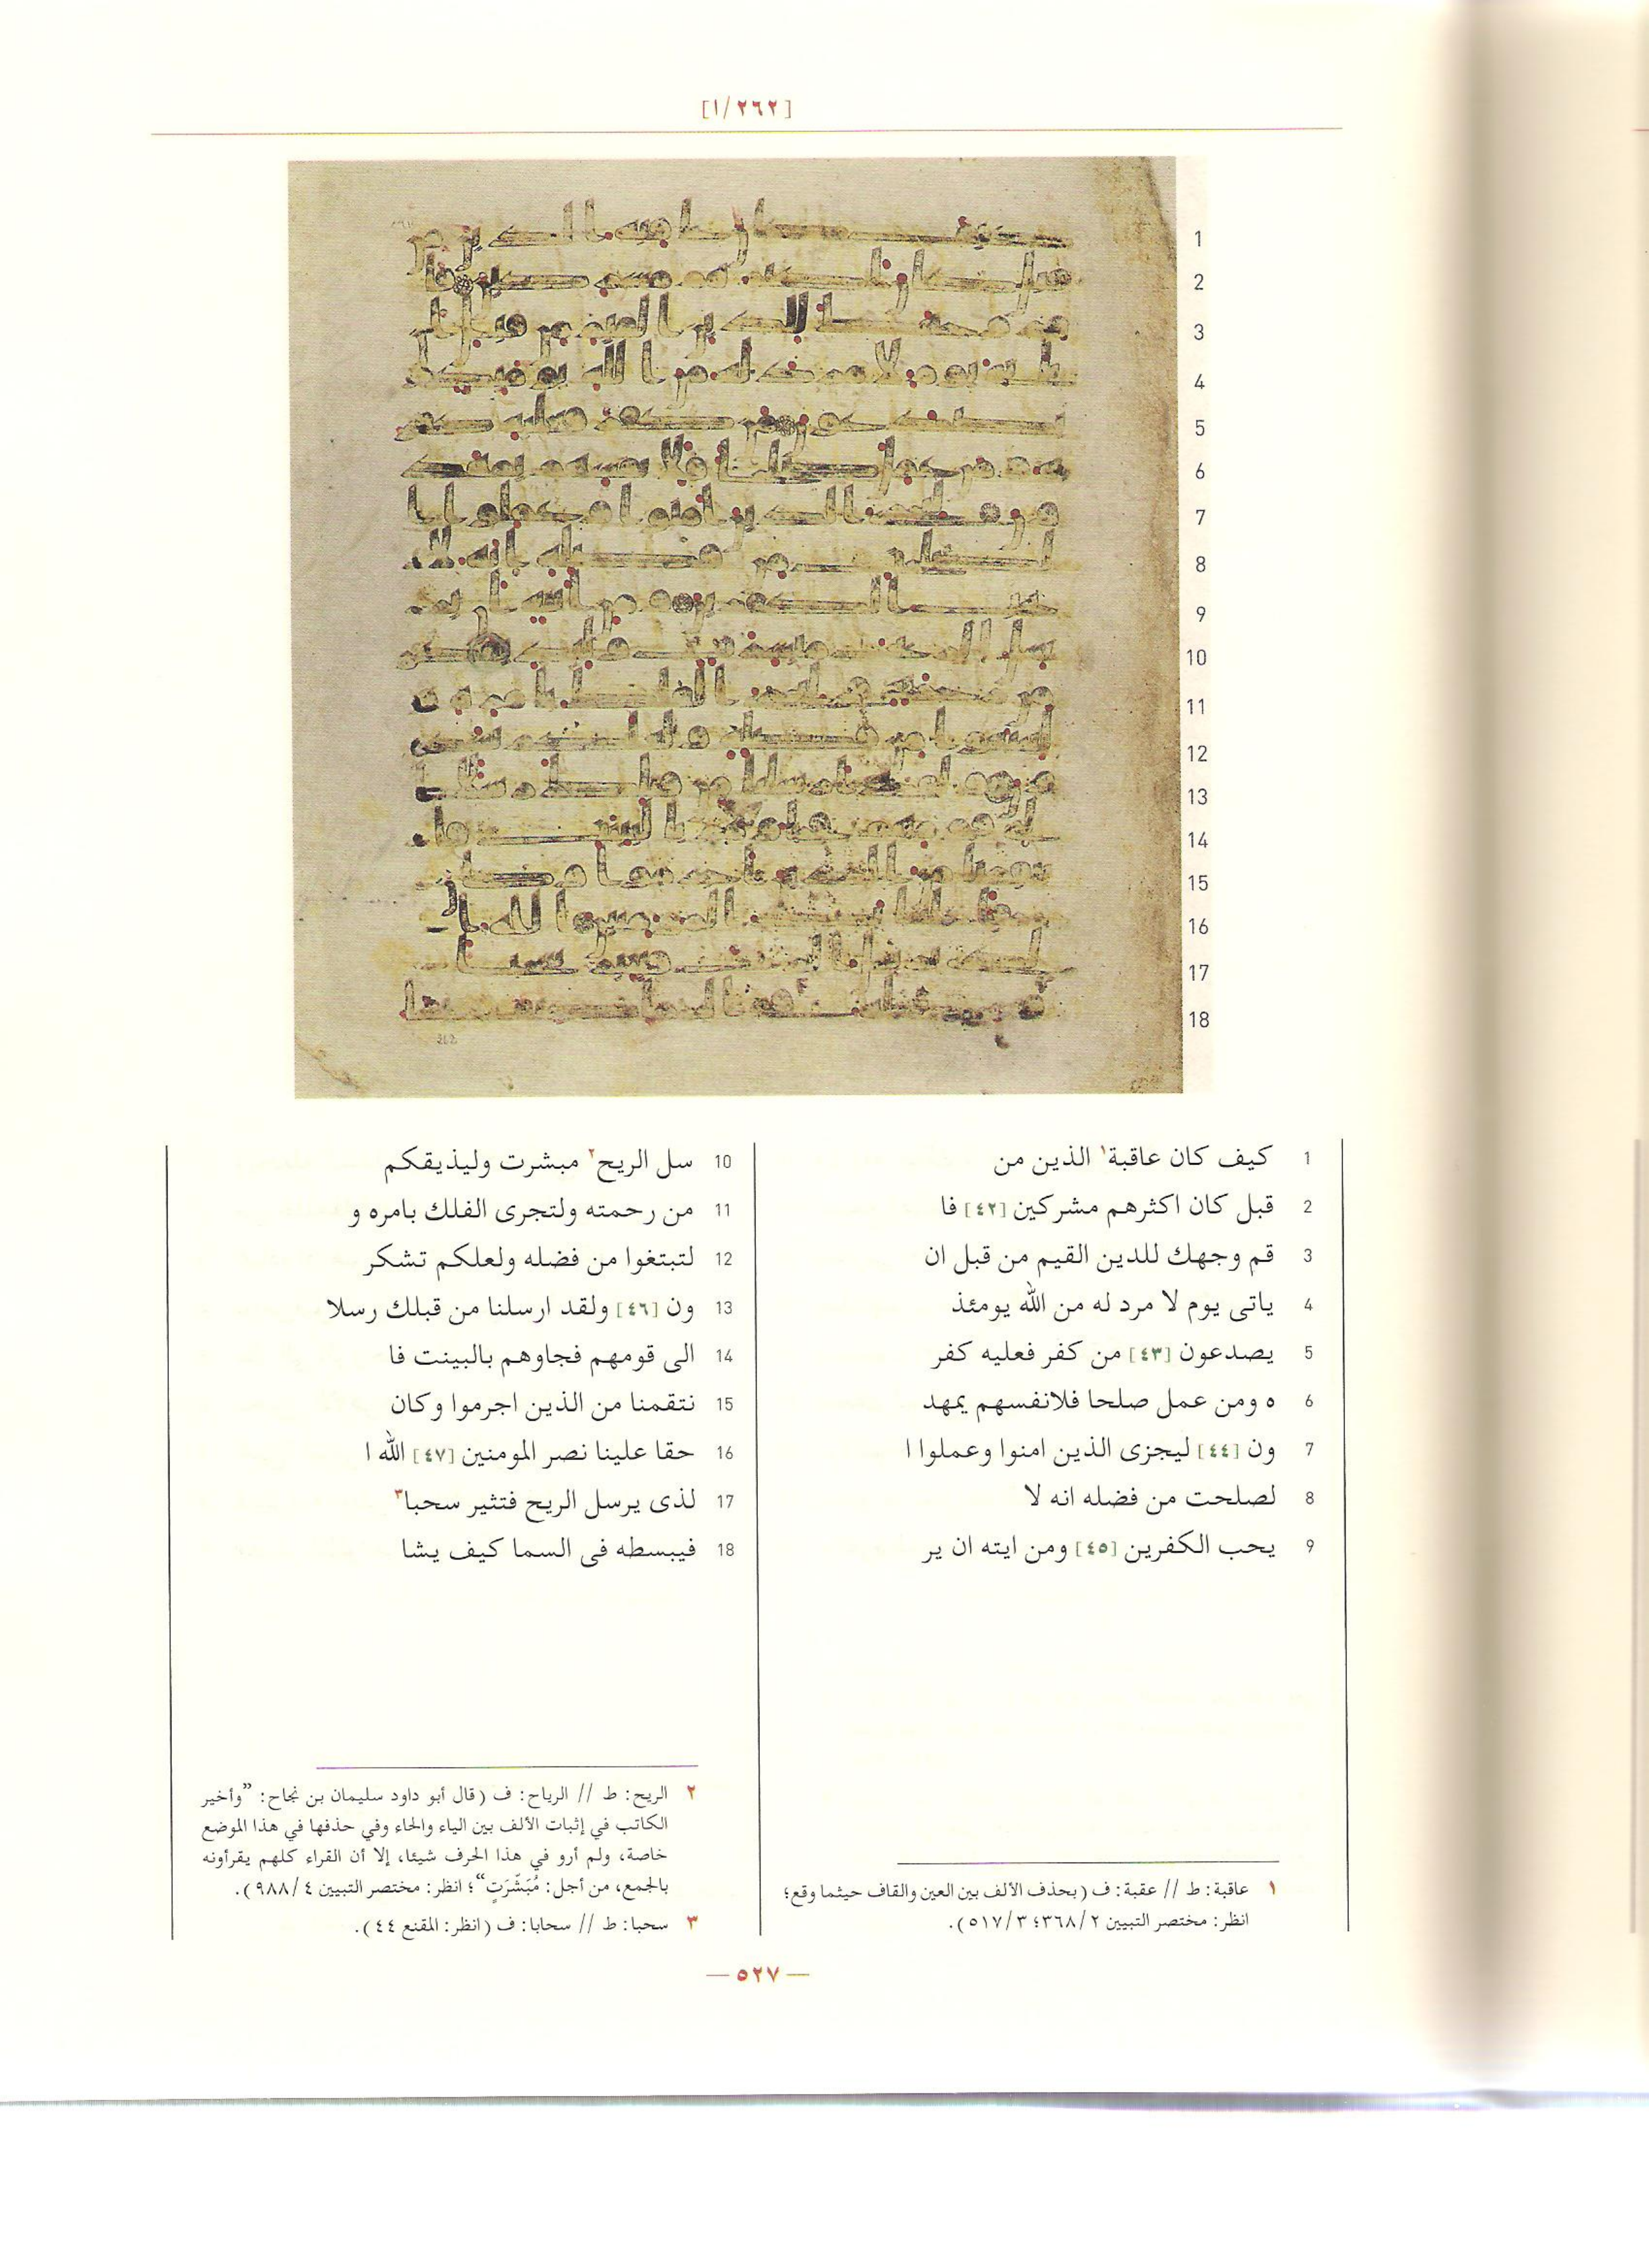 [٢٦٢/١]
1 كيف كان عاقبة١ الذين من
2 قبل كان اكثرهم مشركين [٤٢] فا
3 قم وجهك للدين القيم من قبل ان
4 ياتى يوم لا مرد له من الله يومئذ
5 يصدعون [٤٣] من كفر فعليه كفر
6 ه ومن عمل صلحا فلانفسهم يمهد
7 ون [٤٤] ليجزى الذين امنوا وعملوا ا
8 لصلحت من فضله انه لا
9 يحب الكفرين [٤٥] ومن ايته ان ير
10 سل الريح٢ مبشرت وليذيقكم
11 من رحمته ولتجرى الفلك بامره و
12 لتبتغوا من فضله ولعلكم تشكر
13 ون [٤٦] ولقد ارسلنا من قبلك رسلا
14 الى قومهم فجاوهم بالبينت فا
15 نتقمنا من الذين اجرموا وكان
16 حقا علينا نصر المومنين [٤٧] الله ا
17 لذى يرسل الريح فتثير سحبا٣
18 فيبسطه فى السما كيف يشا
١ عاقبة: ط // عقبة: ف (بحذف الألف بين العين والقاف حيثما وقع؛
انظر: مختصر التبيين ٣٦٨/٢؛ ٥١٧/٣).
٢ الريح: ط // الرياح: ف (قال أبو داود سليمان بن نجاح: ”وأخير
الكاتب في إثبات الألف بين الياء والحاء وفي حذفها في هذا الموضع
خاصة، ولم أرو في هذا الحرف شيئا، إلا أن القراء كلهم يقرأونه
بالجمع، من أجل: مُبَشِّرَتٍ“؛ انظر: مختصر التبيين ٩٨٨/٤).
٣ سحبا: ط // سحابا: ف (انظر: المقنع ٤٤).
— ٥٢٧ —